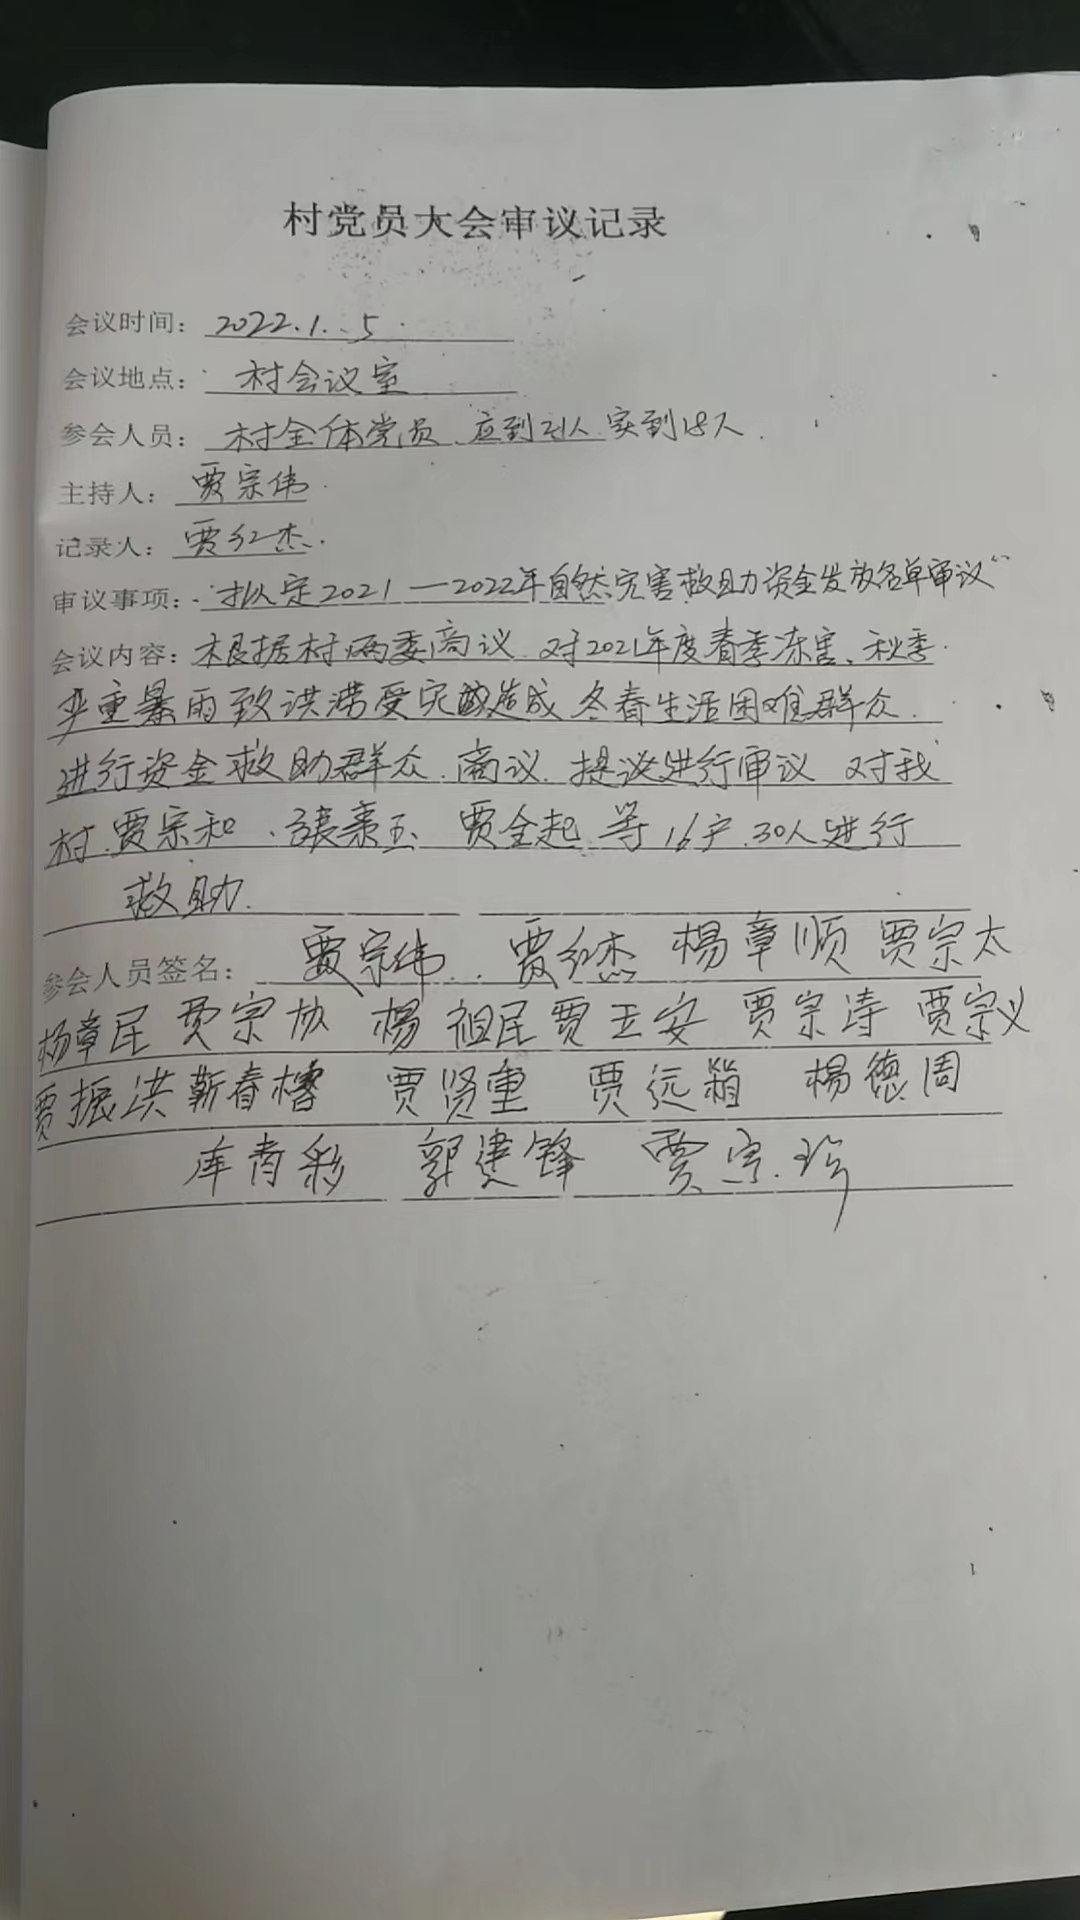 村党员大会审议记录
会议时间: 2022.1.5
会议地点: 村会议室
参会人员: 村全体党员 应到21人 实到18人.
主持人: 贾宗伟
记录人: 贾红杰.
审议事项: 拟定2021—2022年自然灾害救助资金发放名单审议
会议内容: 根据村两委商议 对2021年度春季冻害、秋季
严重暴雨致洪涝受灾造成冬春生活困难群众
进行资金救助群众.商议.提议进行审议 对我
村.贾宗和.张素玉 贾全起.等16户.30人进行
救助.
参会人员签名: 贾宗伟 贾红杰 杨章顺 贾宗太
杨章民 贾宗协 杨祖民 贾玉安 贾宗涛 贾宗义
贾振洪 靳春 贾贤重 贾远 杨德周
库青彩 郭建锋 贾宗珍